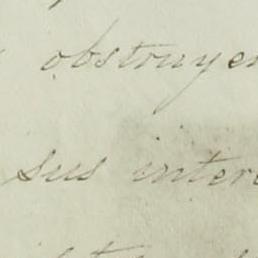 obstruyen
sus intere